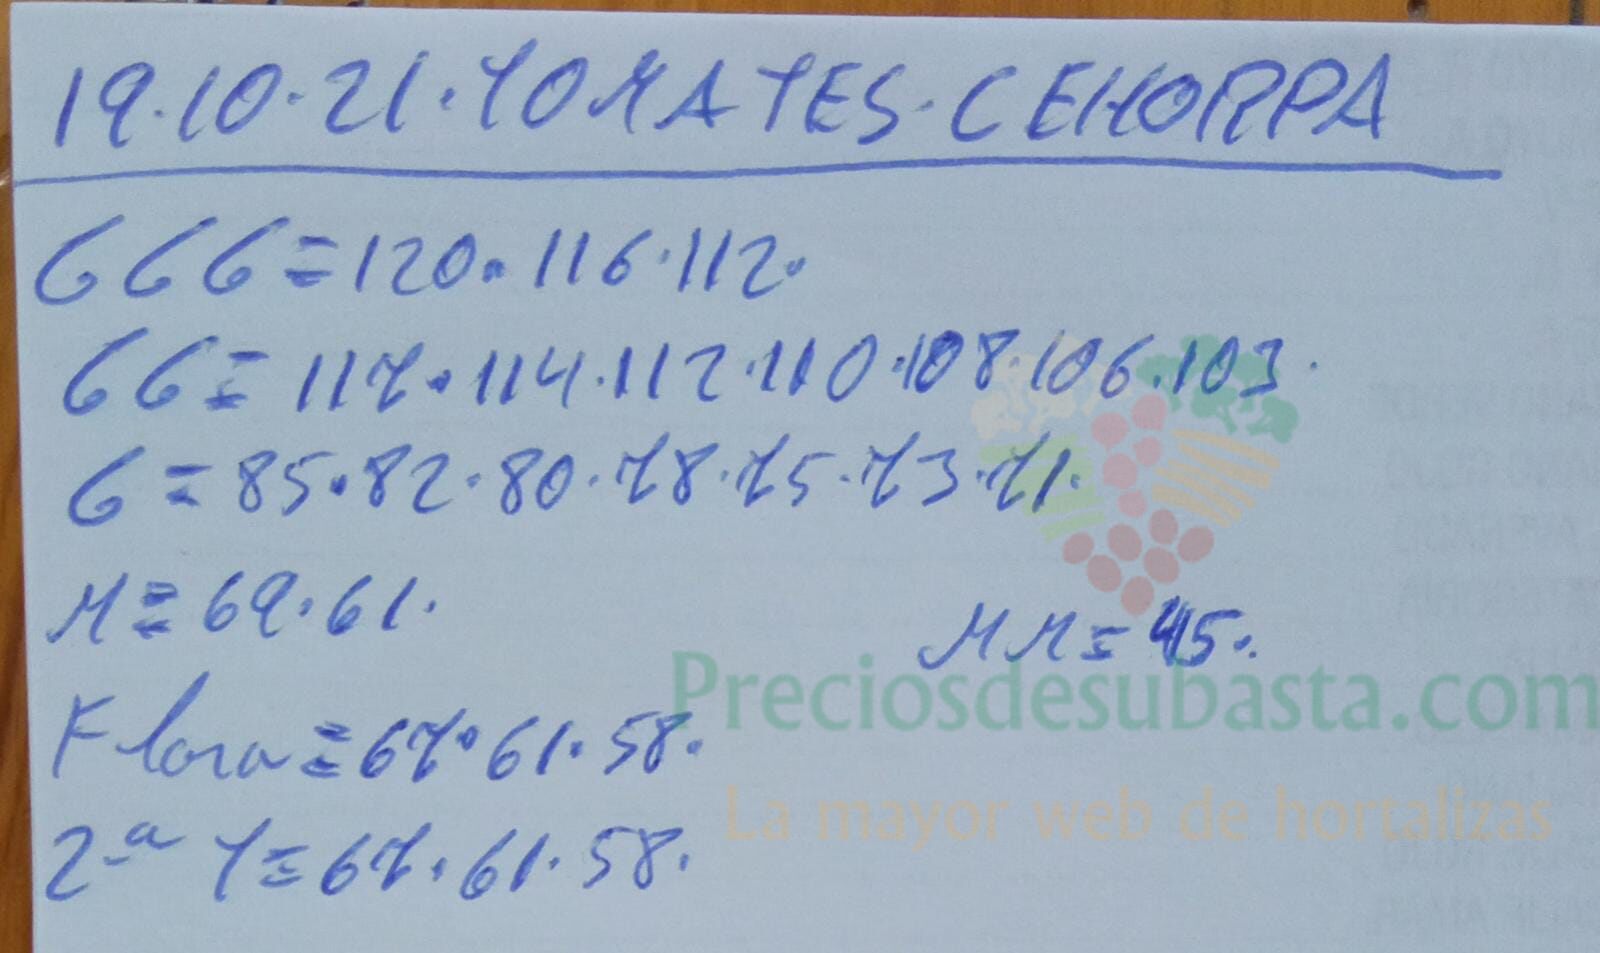 19.10.21.TOMATES.CEHORPA
GGG=120.116.112.
GG=117.114.112.110.108.106.103.
G=85.82.80.78.75.73.71.
M=69.61.
MM=45.
Flora=67.61.58.
2ª T=67.61.58.
Preciosdesubasta.com
La mayor web de hortalizas